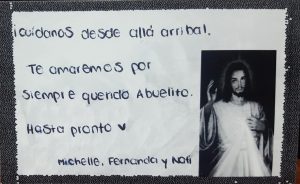 ¡Cuídanos desde allá arriba!.
Te amaremos por
siempre querido Abuelito.
Hasta pronto ♥
Michelle, Fernanda y Noti